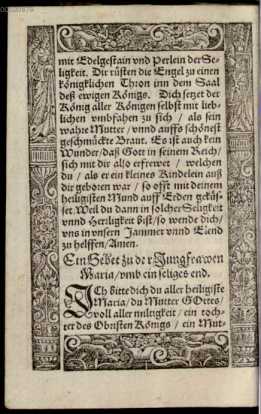 mit Edelgestain vnd Perlein der Se-
ligkeit. Dir rüsten die Engel zu einen
königklichen Thron inn dem Saal
deß ewigen Königs. Dich setzet der
König aller Königen selbst mit lieb-
lichen vmbfahen zu sich / als sein
wahre Mutter / vnnd auffs schönest
geschmückte Braut. Es ist auch kein
Wunder/daß Gott in seinem Reich/
sich mit dir also erfrewet / welchen
du / als er ein kleines Kindelein auß
dir geboren war / so offt mit deinem
heiligisten Mund auff Erden geküs-
set. Weil du dann in solcher Seligkeit
vnnd Herrligkeit bist/so wende dich/
vns in vnsern Jammer vnnd Elend
zu helffen/Amen.
Ein Gebet zu der Jungfrawen
Maria/vmb ein seliges end.
ICh bitte dich du aller heiligiste
Maria/du Mutter GOttes/
voll aller miltigkeit / ein toch-
ter des Obristen Königs / ein Mut-